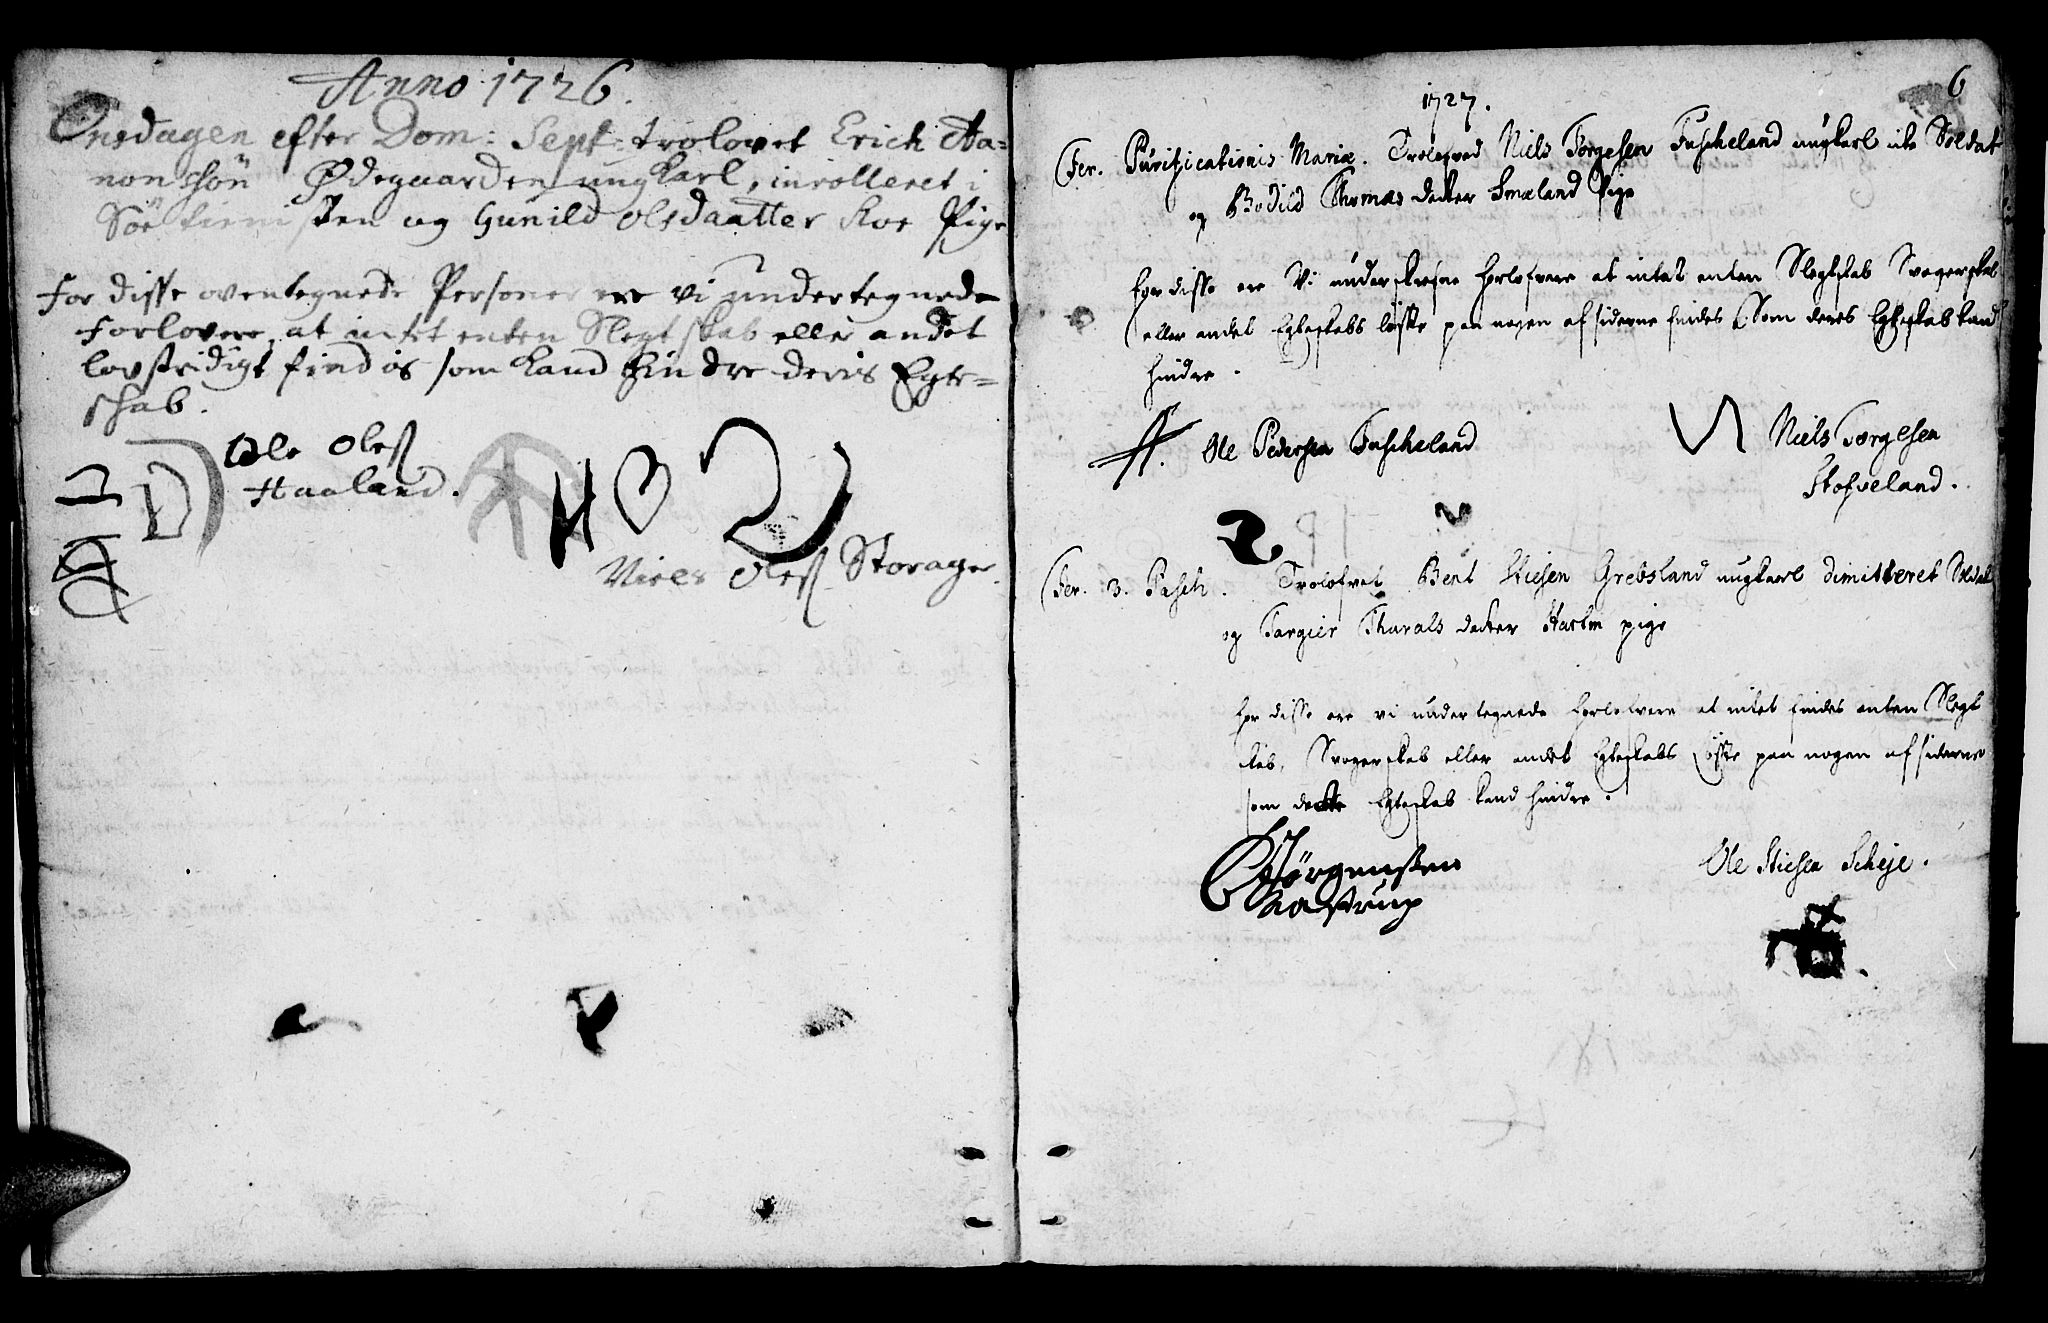 Anno 1726.
Onsdagen efter Dom: Sept: trolovet Erich Aa=
nonshön Ødegaarden ungkarl, inrolleret i
Söe tienisten og Gunild Olsdaatter Roe Pige
For disse oventegnede Personer ere vi undertegnede
Forlovere, at intet enten Slegtskab eller andet
lovstridigt findis som kand hindre deris Egte=
skab.
Ole Oleß
Haaland.
Niels Oleß Storager
6
1727.
Fer. Purificationis Mariæ. Trolofved Niels Torgesen Fuscheland ungkarl icke Soldat
og Bodild Thomas datter Smæland Pige
For disse ere Vi underskrefne Forlofvere at intet enten Slegtskab Svogerskab
eller andet Egteskabs løfte paa nogen af siderne findes, Som deres Egteskab kand
hindre.
Ole Pedersen Fuscheland
Niels Torgesen
Stofveland.
Fer. 3. Pasch. Trolofvet Bent Stiesen Grebsland ungkarl dimitteret Soldat
og Targier Tharals datter pige
For disse ere vi undertegnede Forlofvere at intet findes enten Slegt
skab, Svogerskab eller andet Egteskabs løfte paa nogen af siderne
som dette Egteskab kand hindre.
Jörgensen
Aastrup
Ole Stiesen Scheje.